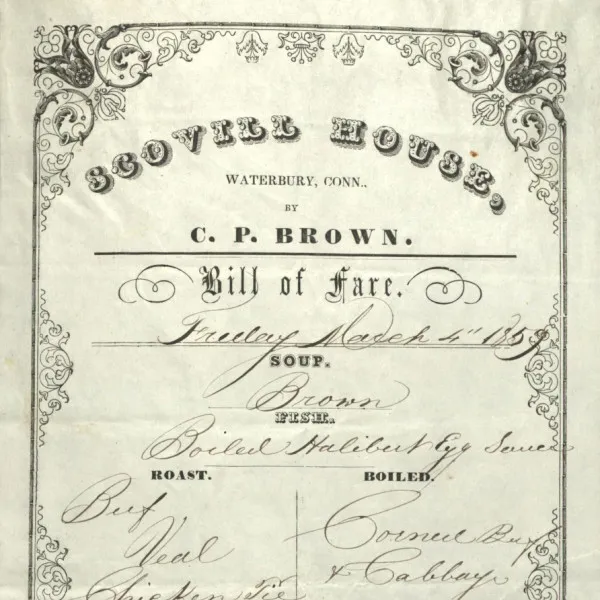 SCOVILL HOUSE,
WATERBURY, CONN.,
BY
C. P. BROWN.
Bill of Fare.
Friday March 4" 1859
SOUP.
Brown
FISH.
Boiled Halibut Egg Sauce
ROAST.
Beef
Veal
Chicken Pie
BOILED.
Corned Beef
& Cabbage